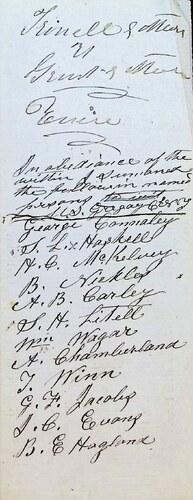 Trinell & Muir
V
Grunt & Moore
Venire
In abediance of the
within I Sumoned
the following named
Persons
George Connaley
S. Liz Haskell
H. C. McKelvey
B. Nickles
A. B. Carley
S. H. Litell
Wm Wagar
A. Chamberland
T. Winn
G. F. Jacobs
J. C. Evans
B. E Hagland